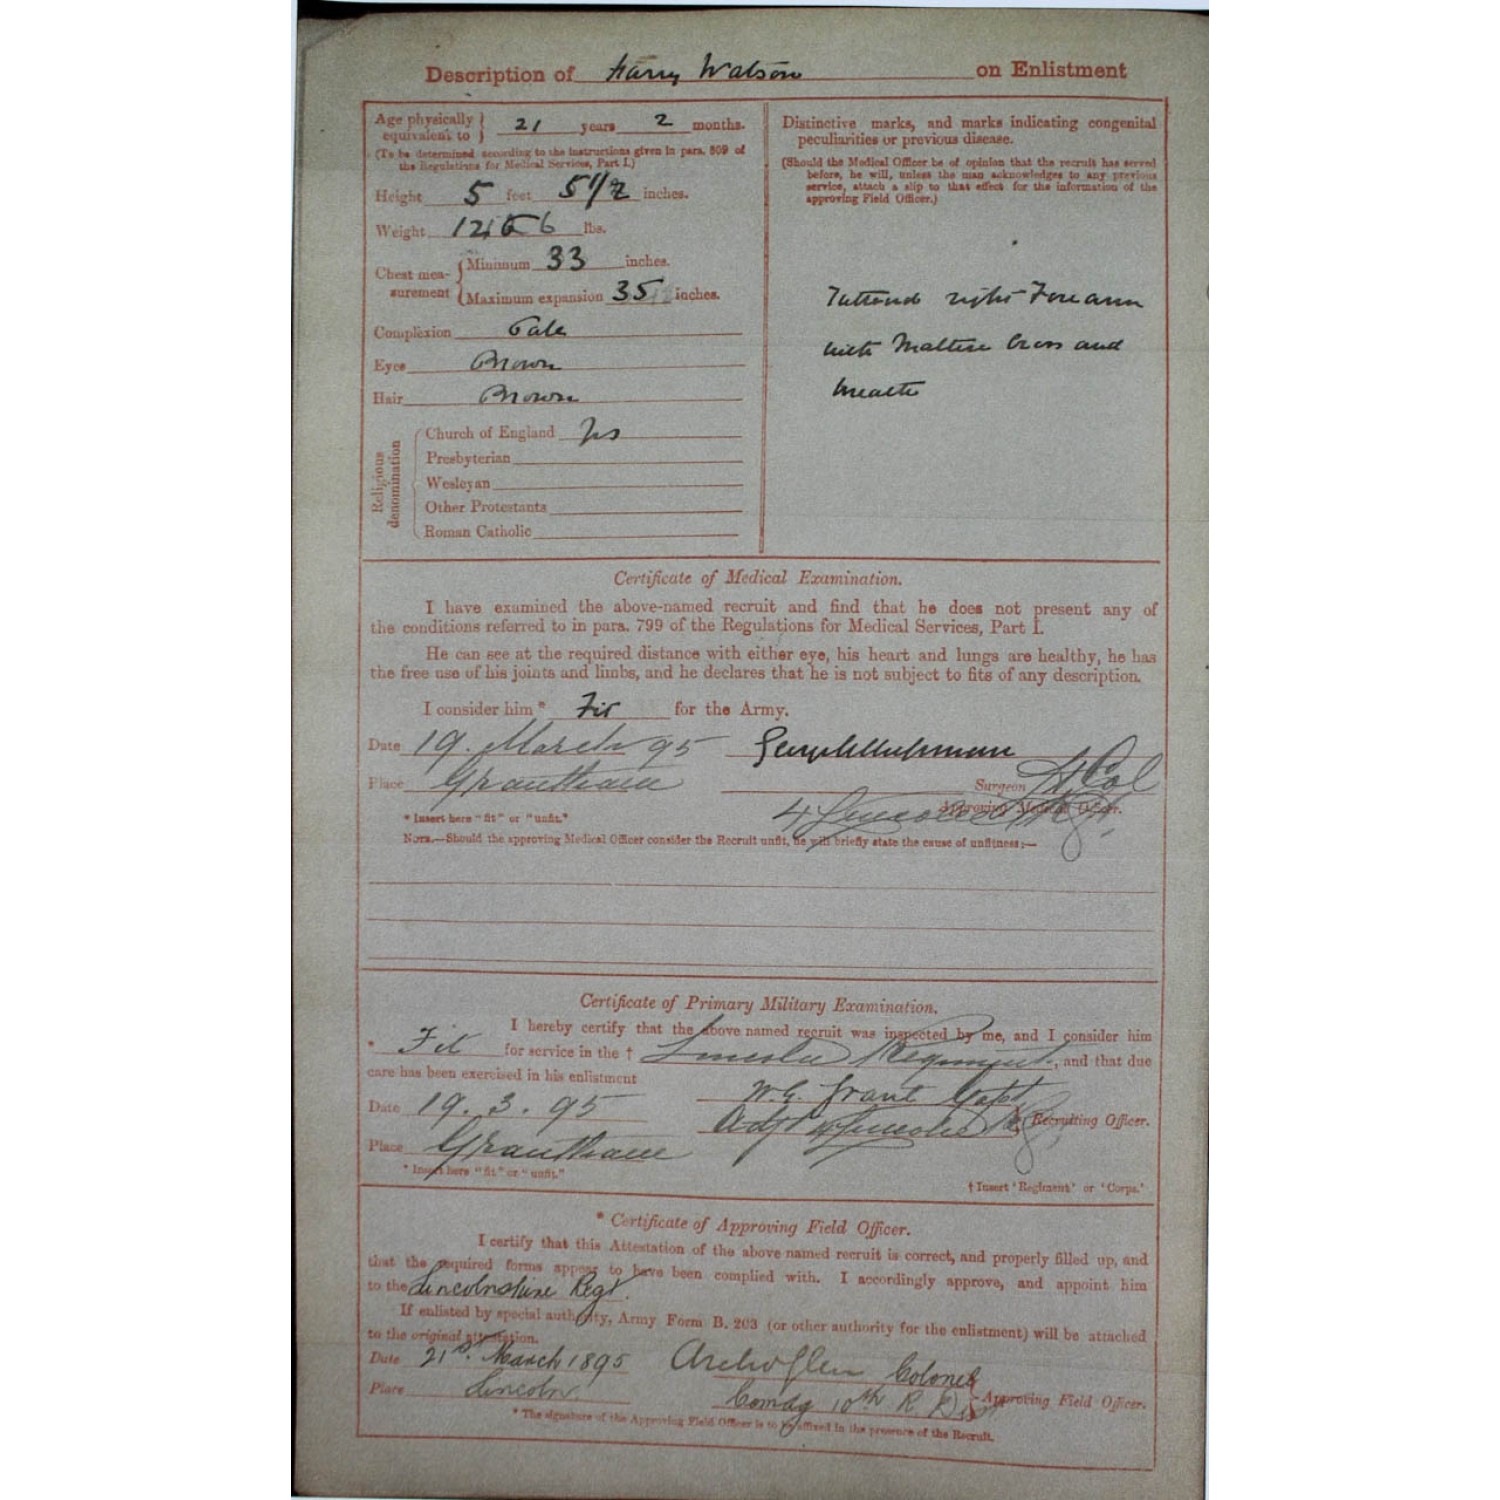 Description of Harry Watson on Enlistment
Age physically equivalent to } 21 years 2 months.
(To be determined according to the instructions given in para. 809 of
the Regulations for Medical Services, Part I.)
Height 5 feet 5 1/2 inches.
Weight lbs.
Chest mea-surement { Minimum 33 inches.
Maximum expansion 35 inches.
Complexion Pale
Eyes Brown
Hair Brown
Religious denomination
Church of England Yes
Presbyterian
Wesleyan
Other Protestants
Roman Catholic
Distinctive marks, and marks indicating congenital
peculiarities or previous disease.
(Should the Medical Officer be of opinion that the recruit has served
before, he will, unless the man acknowledges to any previous
service, attach a slip to that effect for the information of the
approving Field Officer.)
Tattooed right Forearm
with Maltese Cross and
wreath
Certificate of Medical Examination.
I have examined the above-named recruit and find that he does not present any of
the conditions referred to in para. 799 of the Regulations for Medical Services, Part I.
He can see at the required distance with either eye, his heart and lungs are healthy, he has
the free use of his joints and limbs, and he declares that he is not subject to fits of any description.
I consider him * Fit for the Army.
Date 19. March 95
Place Grantham Surgeon Lt Col
4 Lincoln Regt. Approving Medical Officer.
* Insert here "fit" or "unfit."
NOTE.—Should the approving Medical Officer consider the Recruit unfit, he will briefly state the cause of unfitness:—
Certificate of Primary Military Examination.
I hereby certify that the above named recruit was inspected by me, and I consider him
* Fit for service in the † Lincoln Regiment, and that due
care has been exercised in his enlistment
W.G. Grant Capt
Date 19. 3. 95 Adjt 4 Lincoln Rg Recruiting Officer.
Place Grantham
* Insert here "fit" or "unfit."
† Insert 'Regiment' or 'Corps.'
* Certificate of Approving Field Officer.
I certify that this Attestation of the above named recruit is correct, and properly filled up, and
that the required forms appear to have been complied with. I accordingly approve, and appoint him
to the Lincolnshire Regt.
If enlisted by special authority, Army Form B. 203 (or other authority for the enlistment) will be attached
to the original attestation.
Date 21st. March 1895 Colonel
Place Lincoln Comdg 10th R. Dist Approving Field Officer.
* The signature of the Approving Field Officer is to be affixed in the presence of the Recruit.